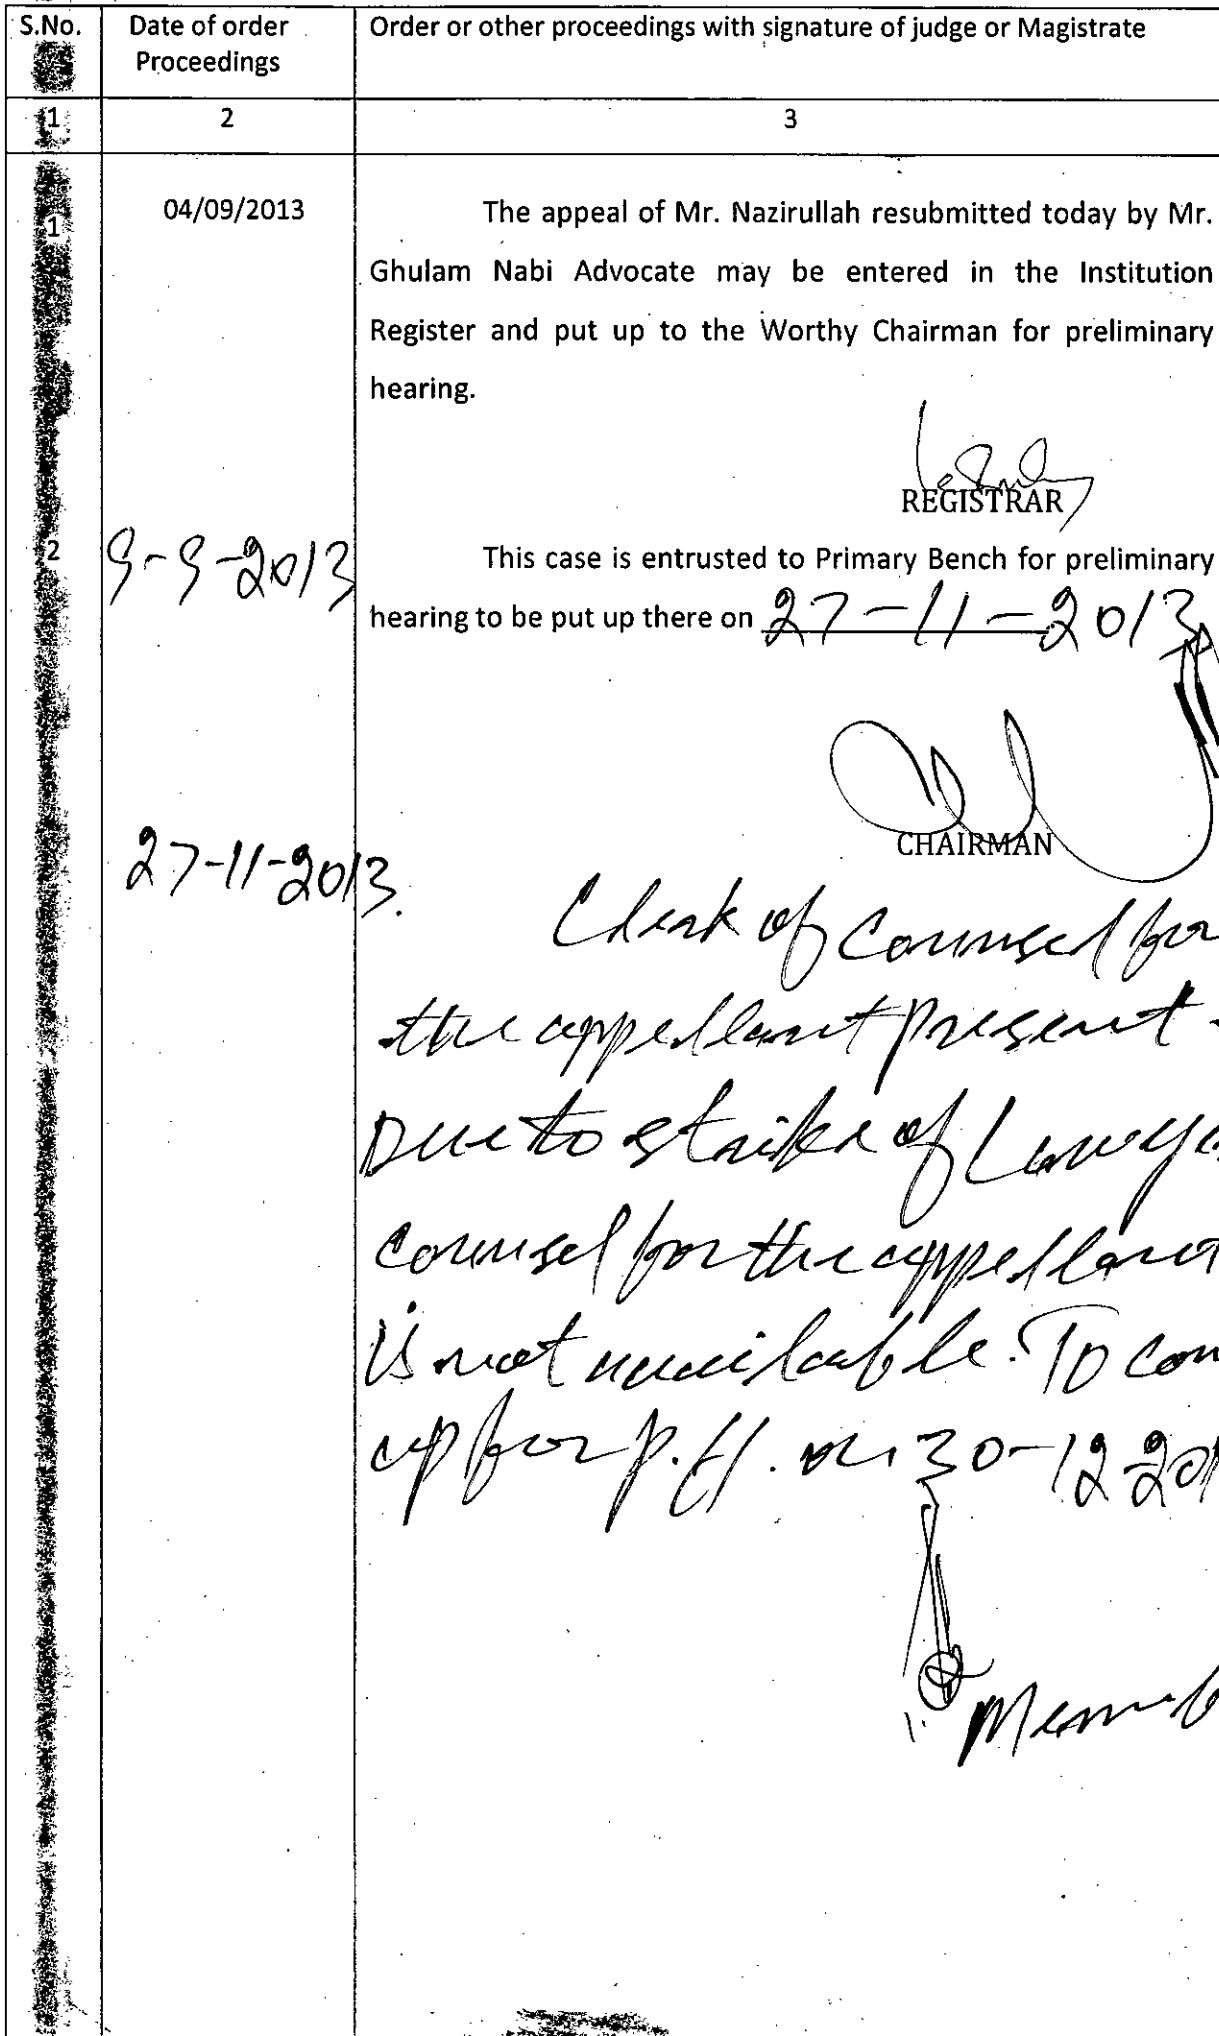 S.No.
Date of order
Proceedings
Order or other proceedings with signature of judge or Magistrate
1
2
3
1
04/09/2013
The appeal of Mr. Nazirullah resubmitted today by Mr.
Ghulam Nabi Advocate may be entered in the Institution
Register and put up to the Worthy Chairman for preliminary
hearing.
REGISTRAR
2
9-9-2013
This case is entrusted to Primary Bench for preliminary
hearing to be put up there on 27-11-2013
CHAIRMAN
27-11-2013.
Clerk of Counsel for
the appellant present.
Due to strike of Lawye
counsel for the appellant
is not available. To com
up for p.H. on 30-12-201
Memb